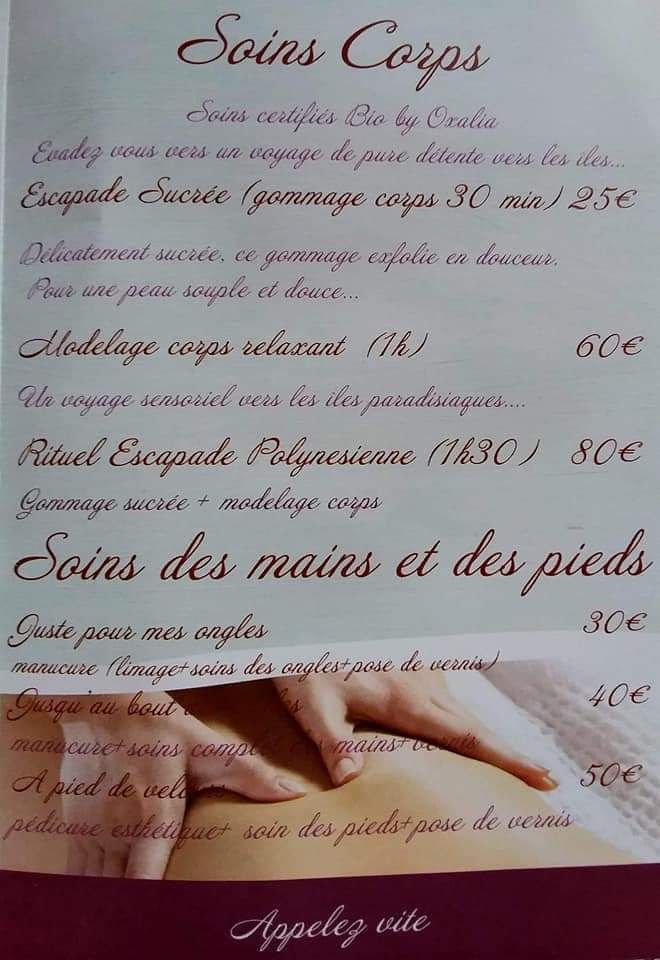 Soins Corps
Soins certifiés Bio by Oxalia
Evadez vous vers un voyage de pure détente vers les iles...
Escapade Sucrée (gommage corps 30 min) 25€
Délicatement sucrée, ce gommage exfolie en douceur.
Pour une peau souple et douce...
Modelage corps relaxant (1h) 60€
Un voyage sensoriel vers les iles paradisiaques....
Rituel Escapade Polynesienne (1h30) 80€
Gommage sucrée + modelage corps
Soins des mains et des pieds
Juste pour mes ongles 30€
manucure (limage+soins des ongles+pose de vernis)
Jusqu'au bout 40€
manucure+soins complet des mains+vernis
A pied de velours 50€
pédicure esthétique+ soin des pieds+pose de vernis
Appelez vite